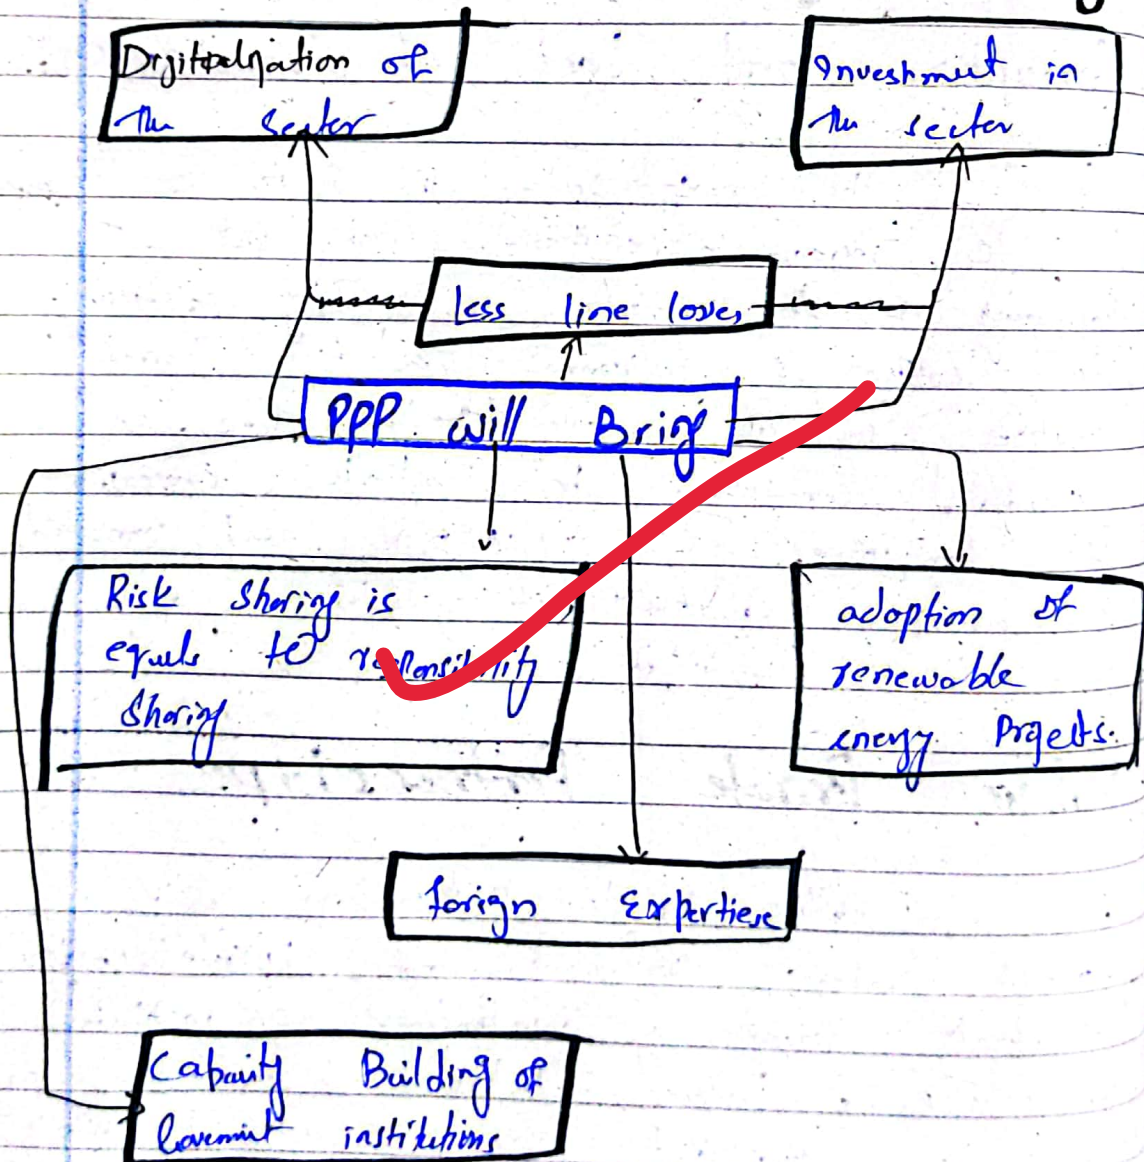 Digitalization of
the sector
Investment in
the sector
less line loses
PPP will Bring
Risk Sharing is
equals to responsibility
Sharing
adoption of
renewable
energy Projects.
forign Expertiese
Capacity Building of
Goverment institutions